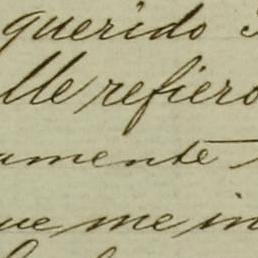 querido
Me refiero
amente
ue me in